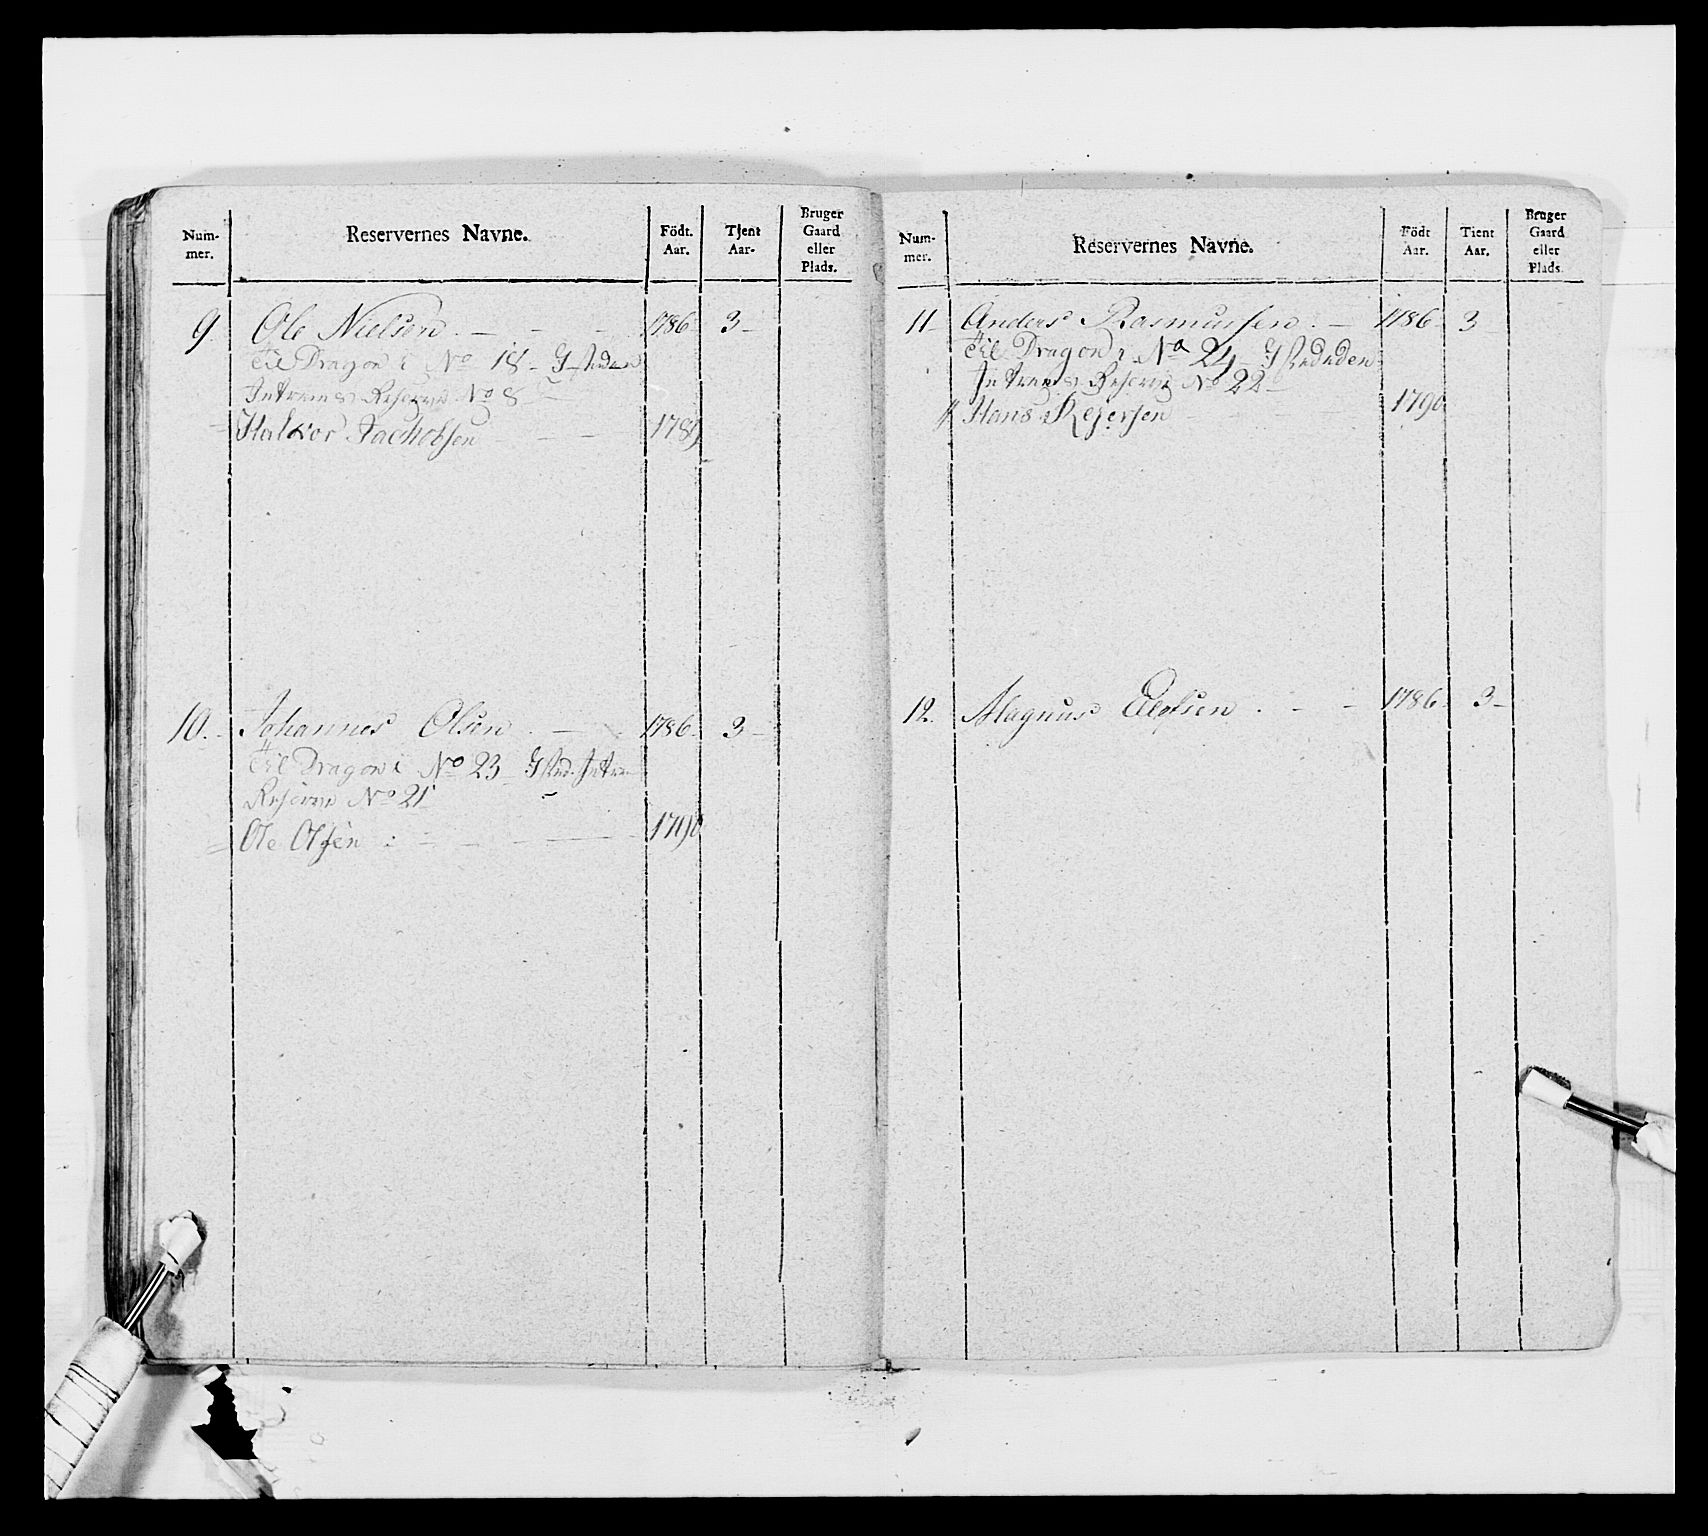 Num-
mer.
Reservernes Navne.
Födt.
Aar.
Tjent
Aar-
Bruger
Gaard
eller
Plads.
9. Ole Nielsen. 1786 3-
Til Dragon No 18-
Reserve No 8
Halvor Jachobsen 1789
10. Johannes Olsen. 1786. 3-
Til Dragon No 23
Reserve No 21
Ole Olsen : 1790
Num-
mer.
Reservernes Navne.
Födt
Aar.
Tient
Aar.
Bruger
Gaard
eller
Plads.
11- Anders Rasmussen. 1786- 3-
Til Dragon No 24
Reserve No 22-
Hans Rejersen 1790
12. Magnus 1786- 3-